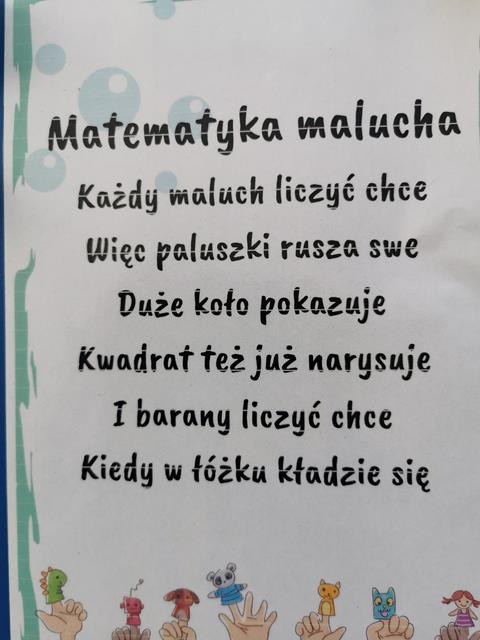 Matematyka malucha
Każdy maluch liczyć chce
Więc paluszki rusza swe
Duże koło pokazuje
Kwadrat też już narysuje
I barany liczyć chce
Kiedy w łóżku kładzie się